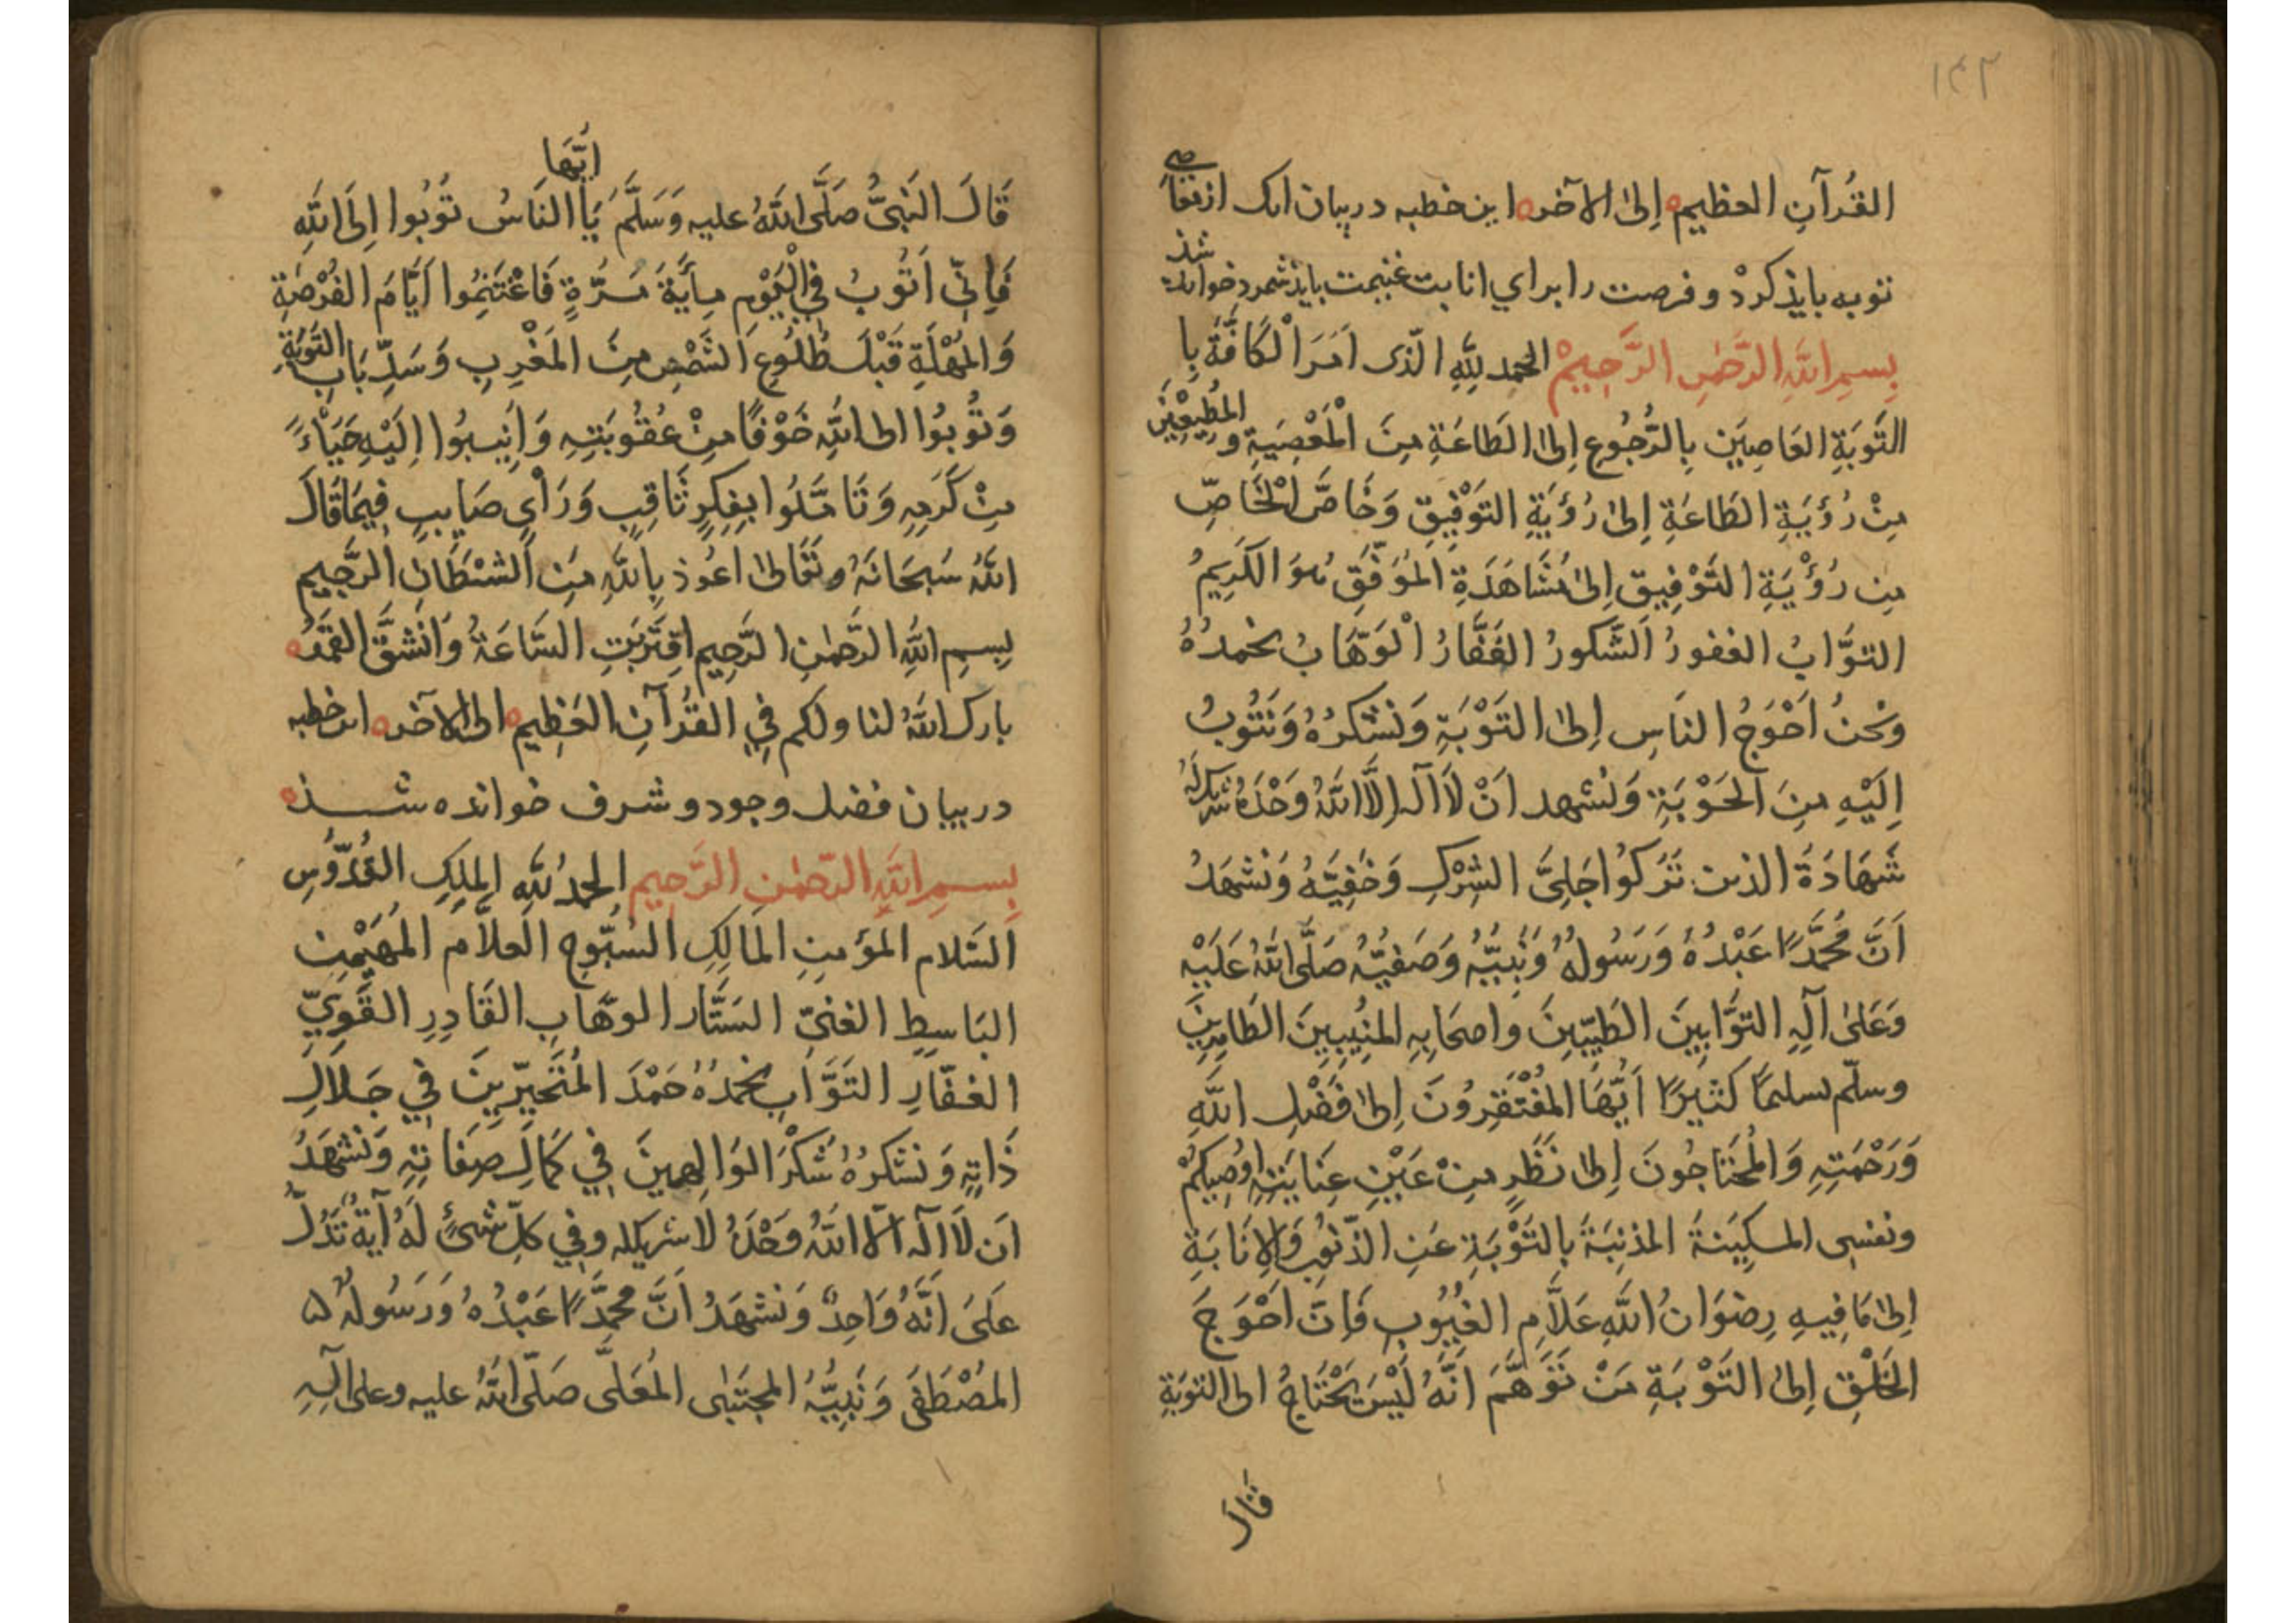 ١٤٢
القُرآنِ العظيم ه إِلىٰ الآخر ه این خطبه در بیان انک از معاصی
توبه بایذ کردْ و فرصت را برای انابت غنیمت بایذ شمرد خوانده شذ
بِسمِ اللَّهِ الرَّحمٰنِ الرَّحِيمْ الحمد لِلَّهِ الّذى اَمَرَ الْكَافَّةَ بِا
التَوبَةِ العَاصِيَن بِالرُّجُوعِ اِلىٰ الطَاعَةِ مِنَ الْمَعْصِيَةِ و المُطِيعِيْنَ
مِنْ رُؤيَةِ الطَاعَةِ إِلىٰ رُؤيَةِ التَوْفِيقِ وَخَاصَّ الْخَاصِّ
مِن رُؤْيَةِ التَوْفِيقِ اِلىٰ مُشَاهَدَةِ المُوَفّقِ هُوَ الكَرِيمُ
التوَّابُ الغفورُ الشَّكورُ الغَفَّارُ الْوَهَّابُ نحْمدُهُ
وَنَحْنُ اَحْوَجُ النَاسِ اِلىٰ التَوْبَةِ وَنَشكرُهُ وَنَتُوبُ
اِلَيْهِ مِنَ الحَوْبَةِ وَنَشهد اَنْ لَا الٓه اِلَّا اللَّهُ وَحْدَهُ شريك لَهُ
شَهَادَةَ الذين تَرَكُوا جَلِيَّ الشِرْكِ وَخَفِيَّهُ وَنَشهَدُ
اَنَّ مُحَمَّدًا عَبْدُهُ وَرَسُولُهُ وَنَبِيُّهُ وَصَفِيُّهُ صَلَّى اللَّهُ عَلَيْهِ
وَعَلىٰ آلِهِ التوَّابِينَ الطَيِّبِينَ وَاصحَابِهِ المنُيبِينَ الطَاهِرِينَ
وسلّم تسليمًا كثيرًا اَيُّهَا المُفْتَقِرُونَ اِلىٰ فَضْلِ اللَّهِ
وَرَحْمَتِهِ وَالمُحْتَاجُونَ اِلىٰ نَظَرٍ مِنْ عَيْنِ عِنَايَتِهِ اُوصِيكُمْ
ونفسِى المسكِيَنةَ المذنِبَةَ بِالتَوْبَةِ عَنِ الذّنُوبِ وَالاِنَابَةِ
اِلىٰ مَا فِيهِ رِضوَانُ اللَّهِ عَلَّامِ الغُيُوبِ فَاِنَّ اَحْوَجَ
الخَلْقِ اِلىٰ التَوْبَةِ مَنْ تَوَهَّمَ اَنَّهُ لَيْسَ يَحْتَاجُ الى التوبَةِ
قَالَ
قَالَ النَبِىُّ صَلَّى اللَّهُ عليه وَسَلَّمَ يَا اَيُّهَا النَاسُ تُوبُوا اِلَى اللَّهِ
فَاِنِّى اَتُوبُ فِي الْيَوْمِ مِأَيَةَ مَرَّةٍ فَاغْتَنِمُوا اَيَّامَ الفُرْصَةِ
وَالمُهْلَةِ قَبْلَ طُلُوعِ الشَمْسِ مِنَ المَغْرِبِ وَسَدِّ بَابِ التَوبَةِ
وَتُوبُوا الى اللَّهِ خَوْفًا مِنْ عُقُوبَتِهِ وَاَنِيبُوا اِلَيْهِ حَيَاءً
مِنْ كَرَمِهِ وَتَامَّلُوا بِفِكرٍ ثَاقِبٍ وَرَأْىٍ صَايِبٍ فِيمَا قَالَ
اللَّهُ سَبحَانَهُ وتعَالىٰ اعُوذ بِاللَّهِ مِنَ الشيْطَانِ الرَّجِيمِ
بِسمِ اللَّهِ الرَّحمٰنِ الرَّحِيمِ اقتَرَبَتِ السَّاعَةُ وَانْشَقَّ القمَرُ ه
بارك اللَّهُ لنا ولكم فِي القُرآنِ العَظِيمِ ه الى الآخر ه این خطبه
در بیان فضل وجود و شرف خوانده شذ ه
بِسمِ اللَّهِ الرّحمٰنِ الرَّحِيمِ الحمدُ لِلَّهِ الملِكِ القُدُّوسِ
السَّلام المؤمِنِ المَالِكِ السُبُّوحِ العلَّام المُهَيْمِنِ
البَاسِطِ الغنيّ السَتَّار الوهَّابِ القَادِرِ القَوِيِّ
الغفَّارِ التَوَّابِ نحمدُهُ حَمْدَ المُتَحَيِّرِينَ فِي جَلَالِ
ذَاتِهِ وَنَشكرُهُ شُكْرَ الوَالِهينَ فِي كَمَالِ صِفَاتِهِ وَنَشهَدُ
اَن لَا الٓه الّا اللَّهُ وَحْدَهُ لَا شريكله وفِي كلِّ شىْءٍ لَهُ آيَةٌ تَدُلُّ
عَلىٰ اَنَّهُ وَاحِدٌ وَنشهَدُ اَنَّ مُحَمَّدًا عَبْدُهُ وَرَسُولُهُ
المُصْطَفَى وَنَبِيُّهُ المجتَبٰى المُعَلّى صَلّى اللَّهُ عليه وعلى آلِهِ